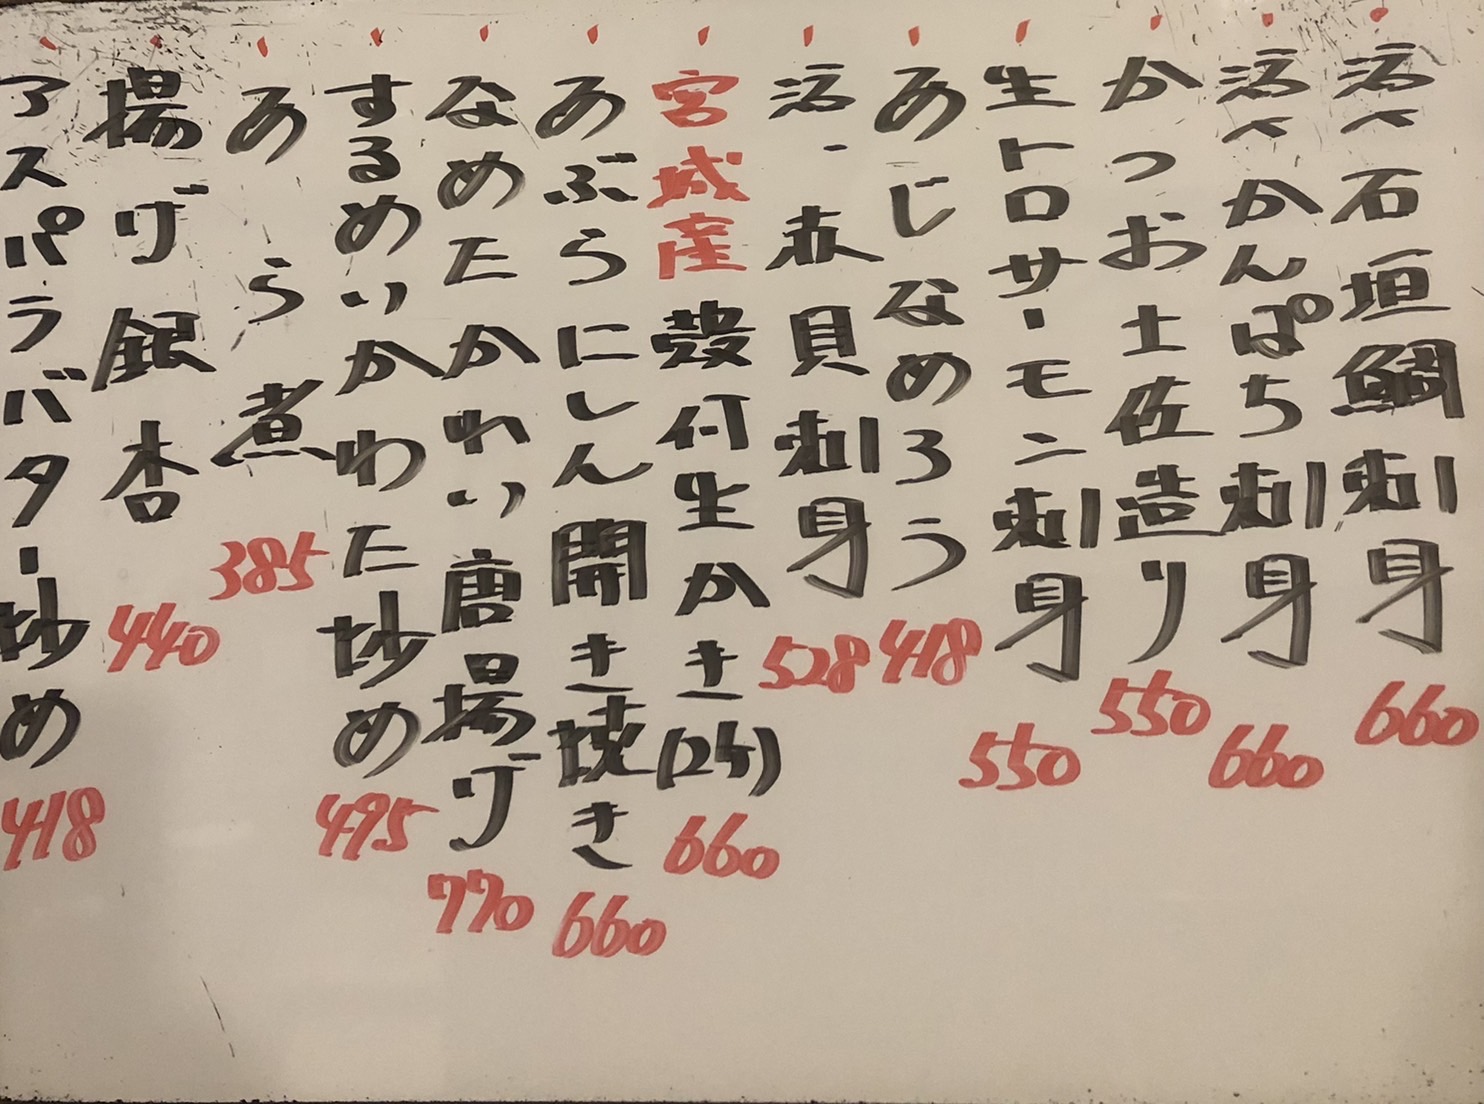 活〆石垣鯛刺身 660
活〆かんぱち刺身 660
かつお土佐造り 550
生トロサーモン刺身 550
あじなめろう 418
活・赤貝刺身 528
宮城産殻付生かき(2ケ) 660
あぶらにしん開き焼き 660
なめたかれい唐揚げ 770
するめいかわた炒め 495
あら煮 385
揚げ銀杏 440
アスパラバター炒め 418